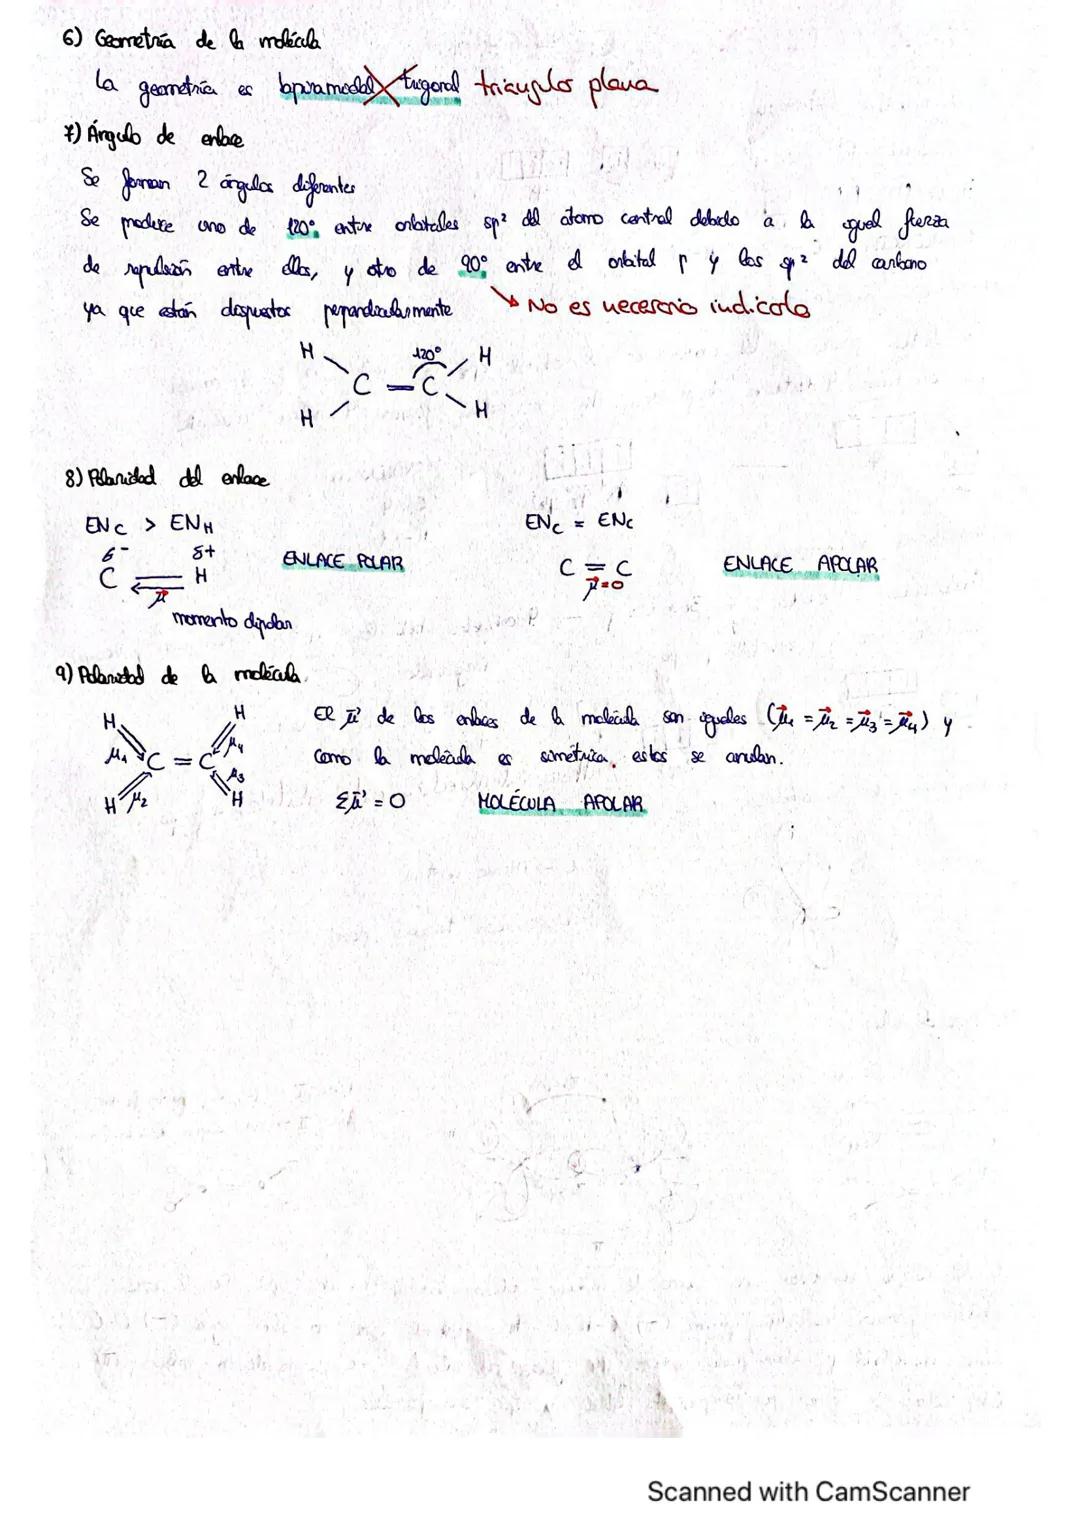 6) Geometría de la molécula
La geometría es bipiramidal trigonal triangular plana
7) Ángulo de enlace
Se forman 2 ángulos diferentes
Se produce uno de 120° entre orbitales sp² del átomo central debido a la igual fuerza
de repulsión entre ellos, y otro de 90° entre el orbital p y los sp² del carbono
ya que están dispuestos perpendicularmente
No es necesario indicarlo
H 120° H
C = C
H H
8) Polaridad del enlace
EN C > EN H
δ- δ+
C H
μ
momento dipolar
ENLACE POLAR
EN C = EN C
C = C
μ=0
ENLACE APOLAR
9) Polaridad de la molécula.
H H
μ1 C = C μ4
H μ2 μ3 H
El μ de los enlaces de la molécula son iguales (μ1 = μ2 = μ3 = μ4) y
como la molécula es simétrica, estos se anulan.
Σμ = 0 MOLÉCULA APOLAR
Scanned with CamScanner